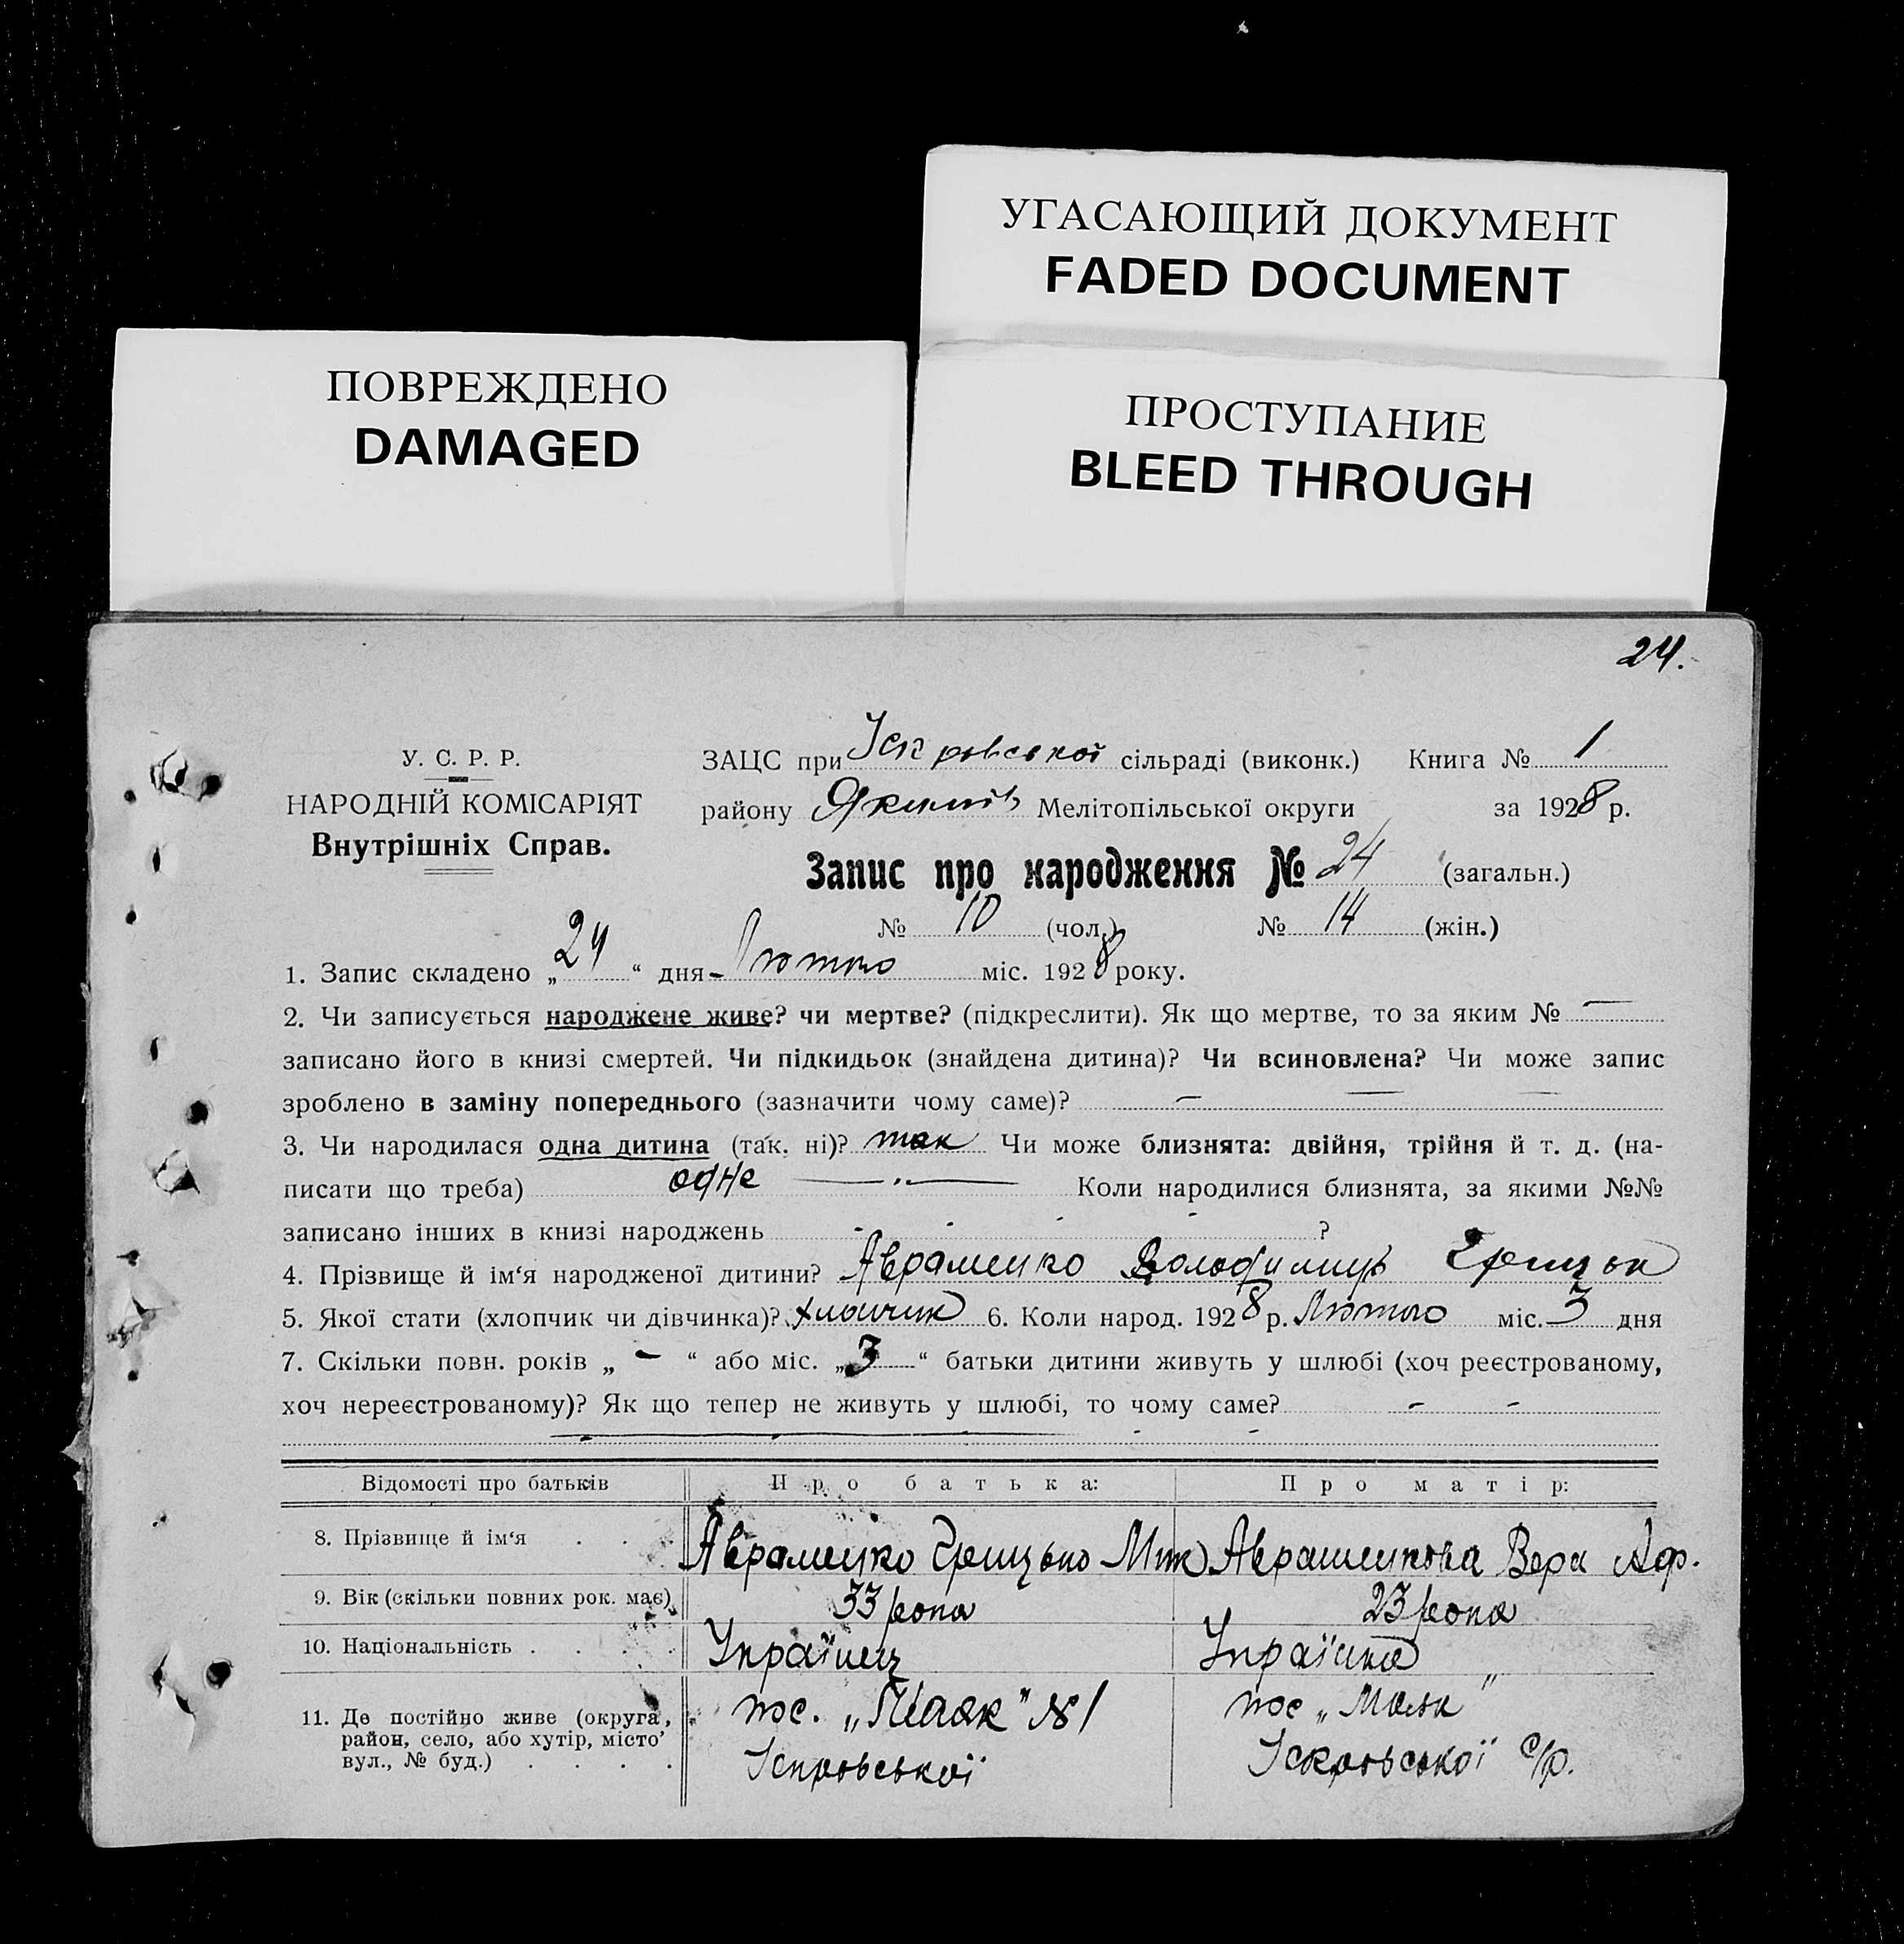 УГАСАЮЩИЙ ДОКУМЕНТ
FADED DOCUMENT
ПОВРЕЖДЕНО
DAMAGED
ПРОСТУПАНИЕ
BLEED THROUGH
24.
У. С. Р. Р.
НАРОДНІЙ КОМІСАРІЯТ
Внутрішніх Справ.
ЗАЦС при Іскровської сільраді (виконк.) Книга № 1
району Якимів Мелітопільської округи за 1928 р.
Запис про народження № 24 (загальн.)
№ 10 (чол.) № 14 (жін.)
1. Запис складено „24“ дня Лютого міс. 1928 року.
2. Чи записується народжене живе? чи мертве? (підкреслити). Як що мертве, то за яким № —
записано його в книзі смертей. Чи підкидьок (знайдена дитина)? Чи всиновлена? Чи може запис
зроблено в заміну попереднього (зазначити чому саме)? — — —
3. Чи народилася одна дитина (так, ні)? так Чи може близнята: двійня, трійня й т. д. (на-
писати що треба) одне —„— Коли народилися близнята, за якими №№
записано інших в книзі народжень - - - - ?
4. Прізвище й ім‘я народженої дитини? Авраменко Володимир Грицьк
5. Якої стати (хлопчик чи дівчинка)? хлопчик 6. Коли народ. 1928 р. Лютого міс. 3 дня
7. Скільки повн. років „ - “ або міс. „3“ батьки дитини живуть у шлюбі (хоч реєстрованому,
хоч нереєстрованому)? Як що тепер не живуть у шлюбі, то чому саме? - -
Відомості про батьків Про батька: Про матір:
8. Прізвище й ім‘я . . . Авраменко Грицько Мик Авраменкова Вера Аф.
9. Вік (скільки повних рок. має) 33 рока 23 рока
10. Національність . . . . Українец Українка
11. Де постійно живе (округа, район, село, або хутір, місто вул., № буд.) . . . .
пос. „Маяк" №1
Іскровської
пос „Маяк"
Іскровської с/р.